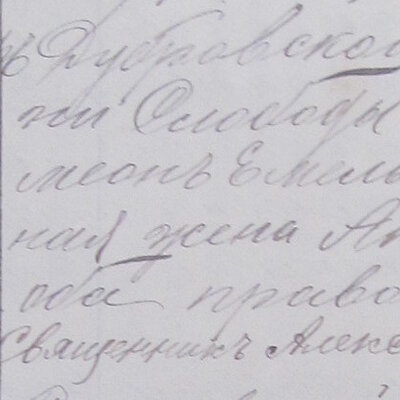 ъ Дубровской
ни Слободы
меонъ Емель
ная жена Ан
оба право
Священникъ Алекс